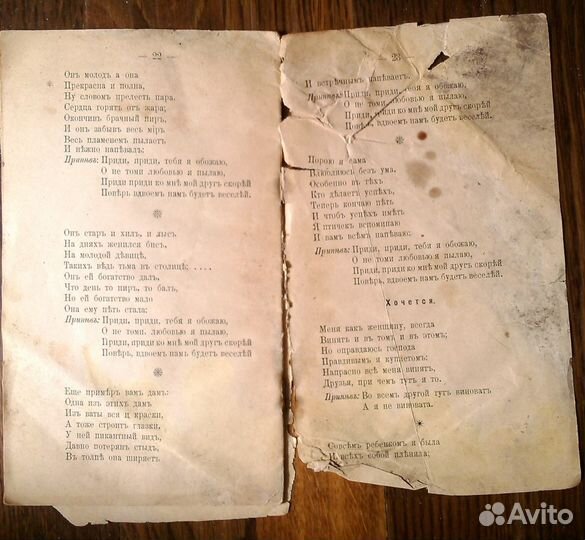 — 22 —
Онъ молодъ а она
Прекрасна и полна,
Ну словомъ прелесть пара,
Сердца горятъ отъ жара;
Окончивъ брачный пиръ,
И онъ забывъ весь міръ
Весь пламенемъ пылаетъ
И нѣжно напѣвалъ:
Припѣвъ: Приди, приди, тебя я обожаю,
О не томи любовью я пылаю,
Приди приди ко мнѣ мой другъ скорѣй
Повѣрь, вдвоемъ намъ будетъ веселѣй.
Онъ старъ и хилъ, и лысъ
На дняхъ женился бисъ,
На молодой дѣвицѣ,
Такихъ вѣдь тьма въ столицѣ; ....
Онъ ей богатство далъ,
Что день то пиръ, то балъ,
Но ей богатство мало
Она ему пѣть стала:
Припѣвъ: Приди, приди, тебя я обожаю,
О не томи, любовью я пылаю,
Приди, приди ко мнѣ мой другъ скорѣй
Повѣрь, вдвоемъ намъ будетъ веселѣй
Еще примѣръ вамъ дамъ:
Одна изъ этихъ дамъ
Изъ ваты вся и краски,
А тоже строитъ глазки,
У ней пикантный видъ,
Давно потерянъ стыдъ,
Въ толпѣ она ширяетъ
— 23 —
И встрѣчнымъ напѣваетъ.
Припѣвъ: Приди, приди, тебя я обожаю,
О не томи, любовью я пылаю,
Приди, приди ко мнѣ мой другъ скорѣй
Повѣрь, вдвоемъ намъ будетъ веселѣй.
Порою я сама
Влюбляюсь безъ ума,
Особенно въ тѣхъ
Кто дѣлаетъ успѣхъ,
Теперь кончаю пѣть
И чтобъ успѣхъ имѣть
Я птичекъ вспоминаю
И вамъ всѣмъ напѣваю:
Припѣвъ: Приди, приди, тебя я обожаю,
О не томи, любовью я пылаю,
Приди, приди ко мнѣ мой другъ скорѣй
Повѣрь, вдвоемъ намъ будетъ веселѣй.
Хочется.
Меня какъ женщину, всегда
Винятъ и въ томъ и въ этомъ;
Но оправдаюсь господа
Правдивымъ я куплетомъ:
Напрасно всѣ меня винятъ,
Друзья, при чемъ тутъ я то.
Припѣвъ: Во всемъ другой тутъ виноватъ
А я не виновата.
Совсѣмъ ребенкомъ я была
И всѣхъ собой плѣнила;
Avito